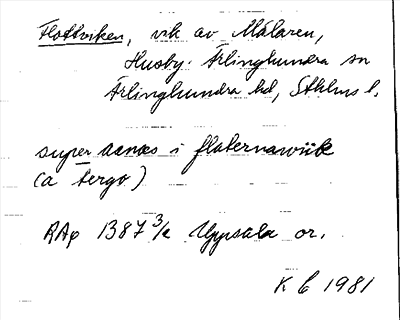 Flottviken, vik av Mälaren,
Husby-Ärlinghundra sn
Ärlinghundra hd, Sthlms l.
super aanæs i flaternawiik
(a tergo)
RAp 1387 3/2 Uppsala or.
K G 1981